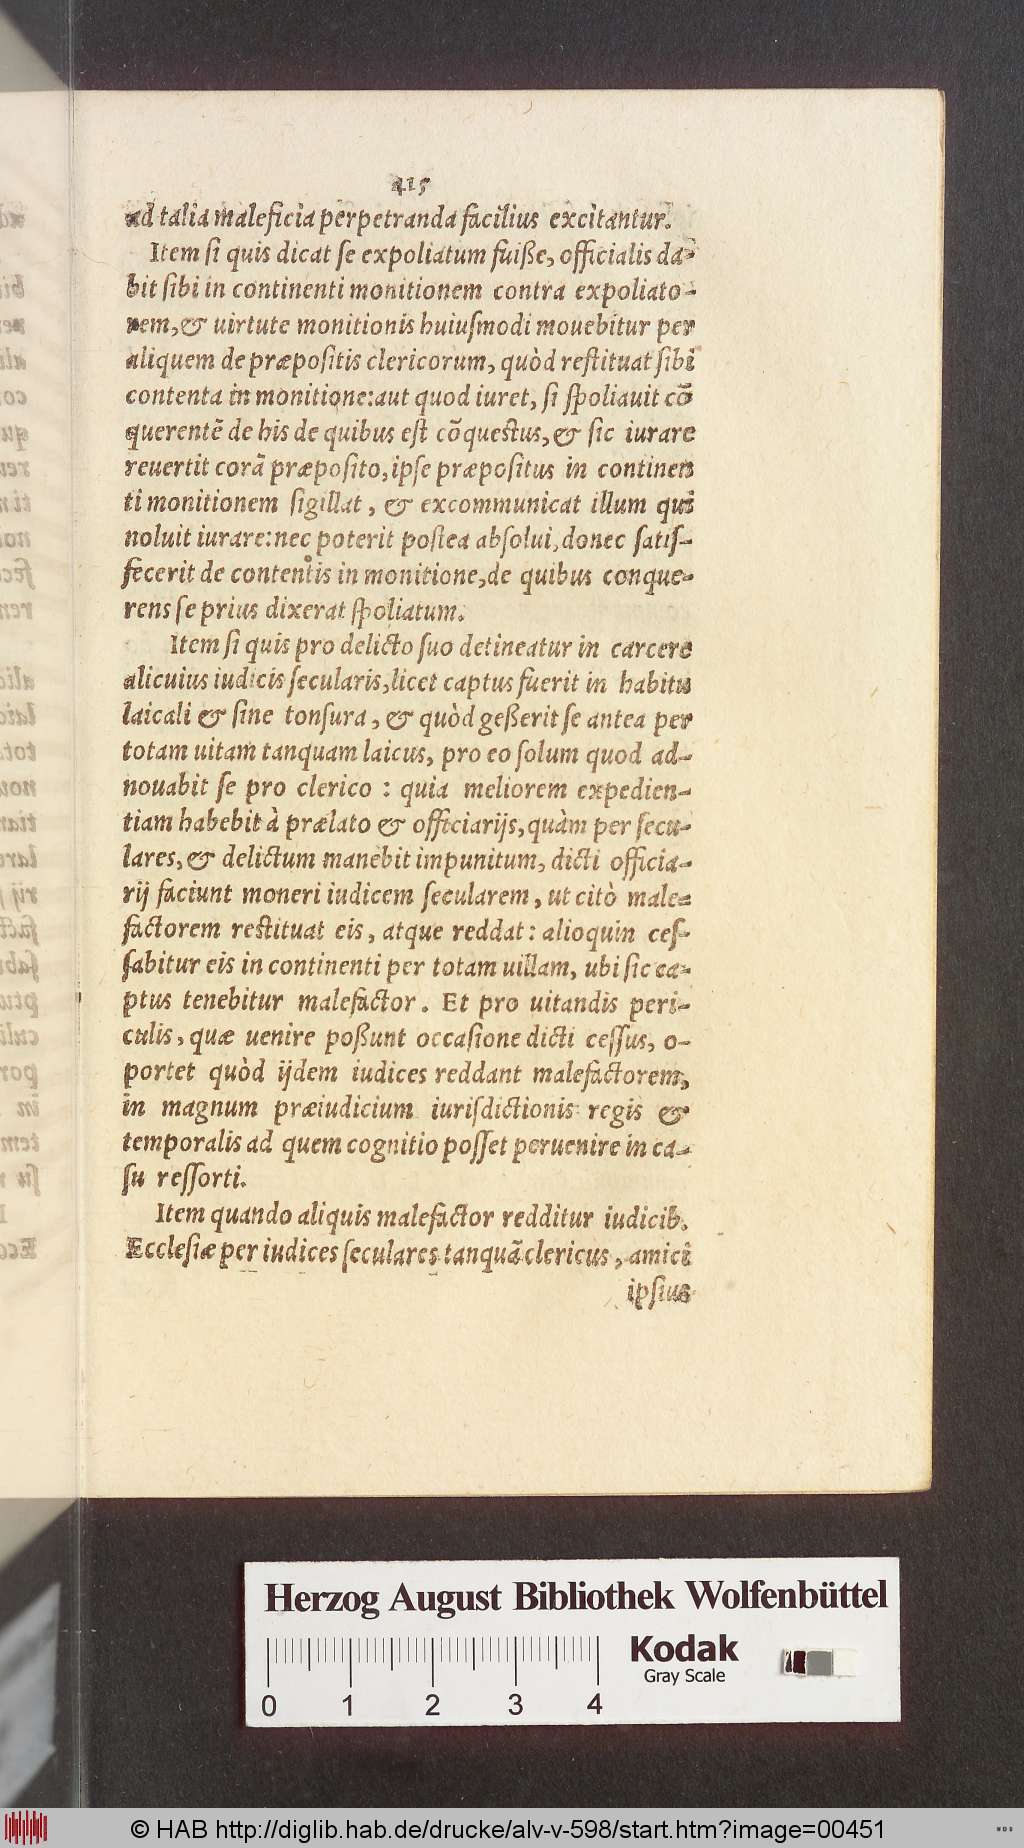 415
ad talia maleficia perpetranda facilius excitantur.
Item ſi quis dicat ſe expoliatum fuiße, officialis da-
bit ſibi in continenti monitionem contra expoliato-
rem, & uirtute monitionis huiuſmodi mouebitur per
aliquem de præpoſitis clericorum, quòd reſtituat ſibi
contenta in monitione: aut quod iuret, ſi ſpoliauit cō
querentē de his de quibus eſt cōqueſtus, & ſic iurare
reuertit corā præpoſito, ipſe præpoſitus in continen
ti monitionem ſigillat, & excommunicat illum qui
noluit iurare: nec poterit poſtea abſolui, donec ſatiſ-
fecerit de contentis in monitione, de quibus conque-
rens ſe prius dixerat ſpoliatum.
Item ſi quis pro delicto ſuo detineatur in carcere
alicuius iudicis ſecularis, licet captus fuerit in habitu
laicali & ſine tonſura, & quòd geßerit ſe antea per
totam uitam tanquam laicus, pro eo ſolum quod ad-
nouabit ſe pro clerico : quia meliorem expedien-
tiam habebit à prælato & officiarijs, quàm per ſecu-
lares, & delictum manebit impunitum, dicti officia-
rij faciunt moneri iudicem ſecularem, ut citò male-
factorem reſtituat eis, atque reddat: alioquin ceſ-
ſabitur eis in continenti per totam uillam, ubi ſic ca-
ptus tenebitur malefactor. Et pro uitandis peri-
culis, quæ uenire poßunt occaſione dicti ceſſus, o-
portet quòd ijdem iudices reddant malefactorem,
in magnum præiudicium iuriſdictionis regis &
temporalis ad quem cognitio poſſet peruenire in ca-
ſu reſſorti.
Item quando aliquis malefactor redditur iudicib.
Eccleſiæ per iudices ſeculares tanquā clericus, amici
ipſius
Herzog August Bibliothek Wolfenbüttel
Kodak
Gray Scale
0 1 2 3 4
© HAB http://diglib.hab.de/drucke/alv-v-598/start.htm?image=00451